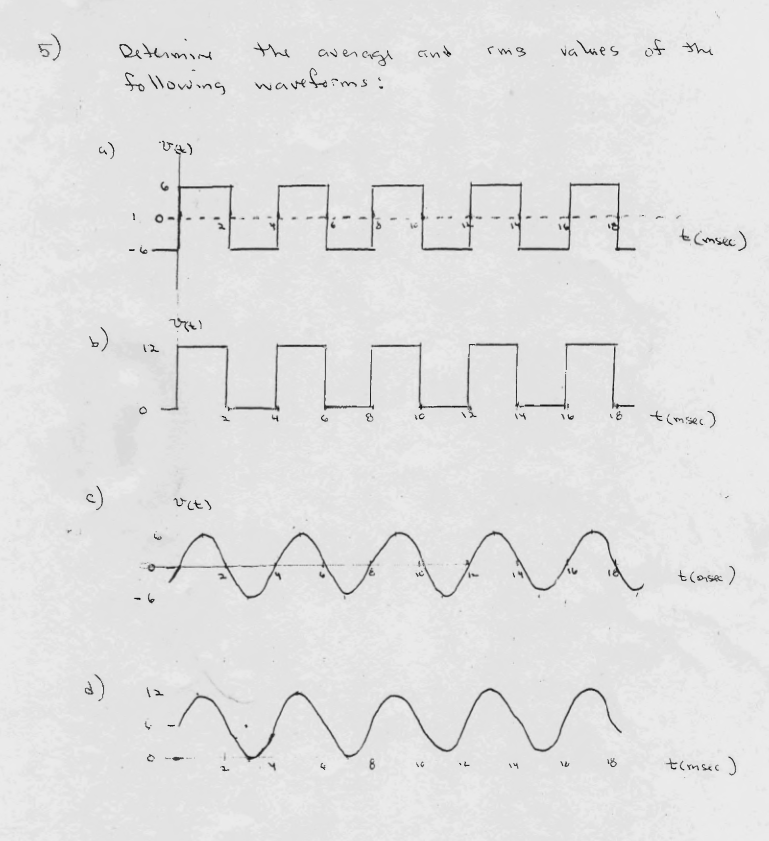 5) Determine the average and rms values of the
following waveforms:
a) v(t)
6
0
-6
2 4 6 8 10 12 14 16 18
t(msec)
b) v(t)
12
0
2 4 6 8 10 12 14 16 18
t(msec)
c) v(t)
6
0
-6
2 4 6 8 10 12 14 16 18
t(msec)
d)
12
6
0
2 4 6 8 10 12 14 16 18
t(msec)